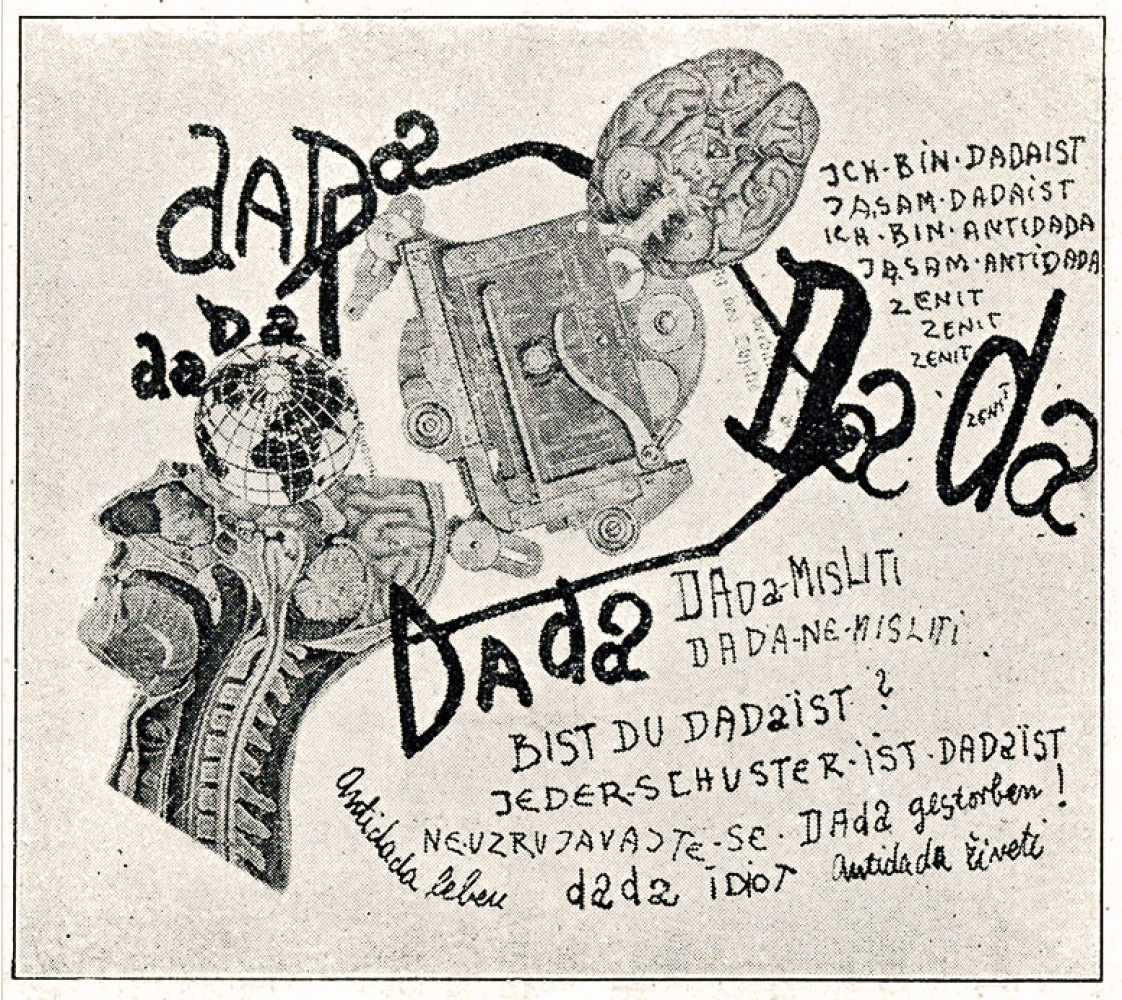 dADa
daDa
ICH·BIN·DADAIST
JA,SAM·DADAIST
ICH·BIN·ANTIDADA
JA,SAM·ANTIDADA
ZENIT
ZENIT
ZENIT
Dada
ZENIT
Dada
DADa-MISLITI
DADA-NE-MISLITI
BIST DU DADaÏST ?
JEDER-SCHUSTER·IST·DADaÏST
NE·UZRUJAVAJTe-SE· DAda gestorben!
Antidada leben
dada IDIOT
Antidada živeti